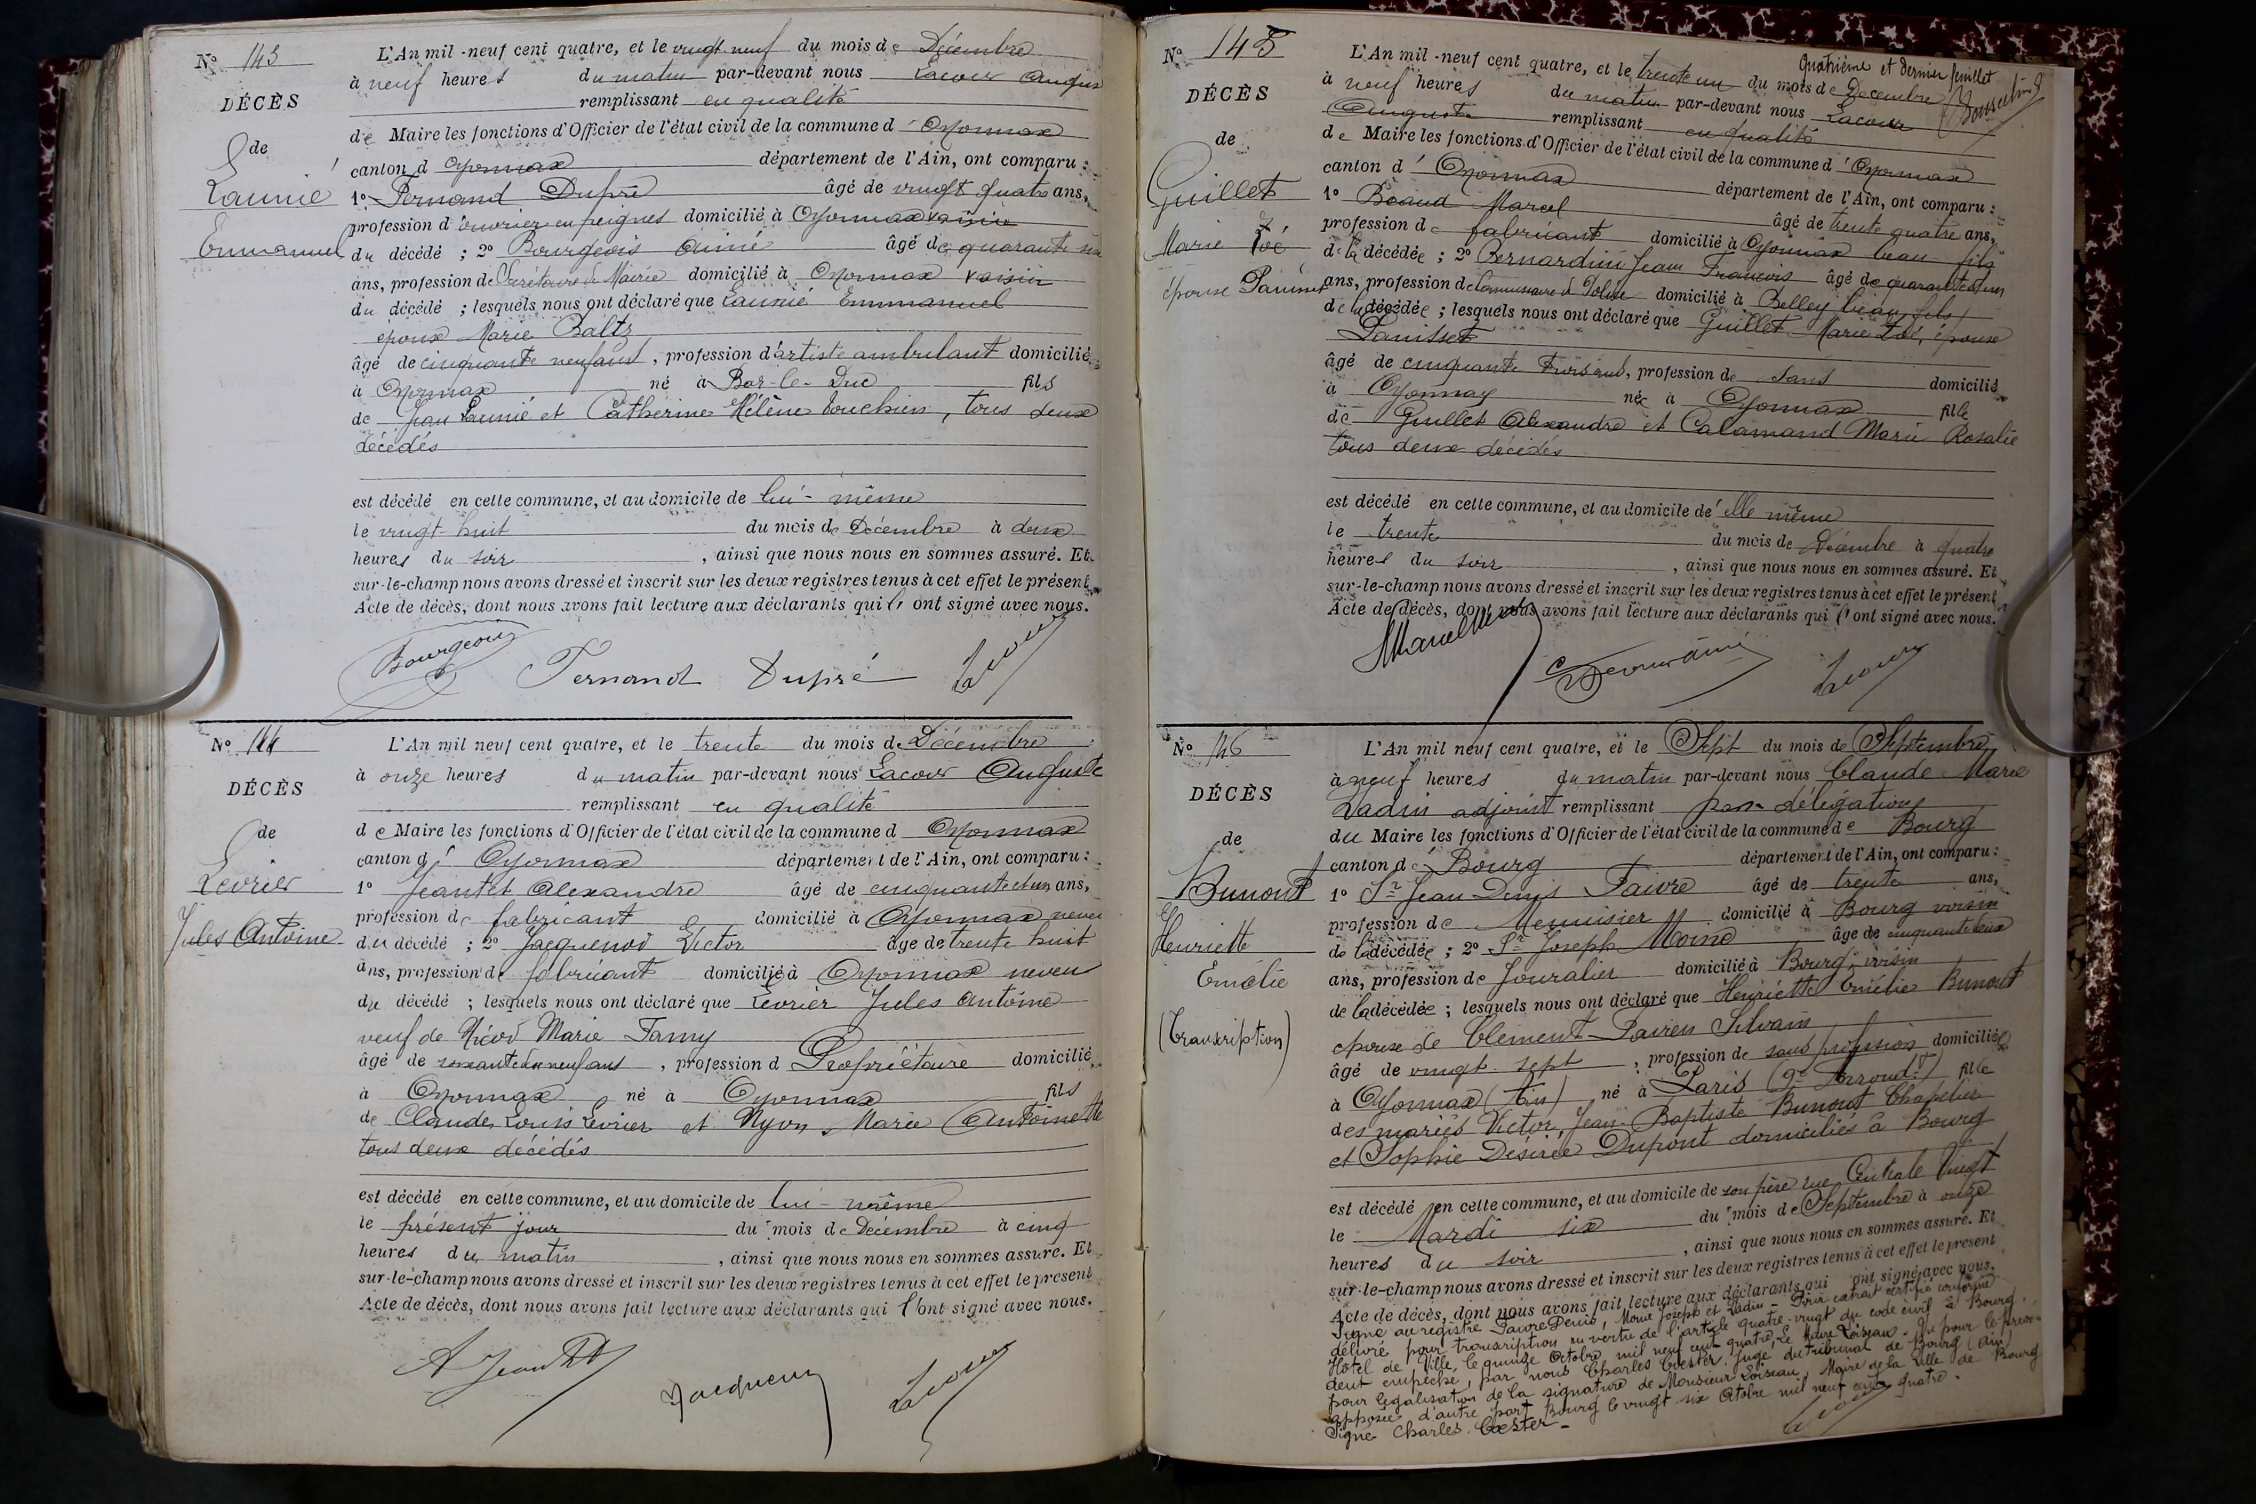 N° 143
DÉCÈS
de
Launié
Emmanuel
L'An mil-neuf cent quatre, et le vingt neuf du mois de Décembre
à neuf heures du matin par-devant nous Lacour Augus
remplissant en qualité
de Maire les fonctions d'Officier de l'état civil de la commune d'Oyonnax
canton d'Oyonnax département de l'Ain, ont comparu :
1° Fernand Dupré âgé de vingt quatre ans,
profession d'ouvrier en peignes domicilié à Oyonnax voisin
du décédé ; 2° Bourgeois Aimé âgé de quarante
ans, profession de Secrétaire de Mairie domicilié à Oyonnax voisin
du décédé ; lesquels nous ont déclaré que Launié Emmanuel
époux Marie Baltz
âgé de cinquante neuf ans, profession d'artiste ambulant domicilié
à Oyonnax né à Bar-le-Duc fils
de Jean Launié et Catherine Hélène Touchien, tous deux
décédés
est décédé en cette commune, et au domicile de lui-même
le vingt-huit du mois de Décembre à deux
heures du soir, ainsi que nous nous en sommes assuré. Et
sur-le-champ nous avons dressé et inscrit sur les deux registres tenus à cet effet le présent
Acte de décès, dont nous avons fait lecture aux déclarants qui l'ont signé avec nous.
Bourgeois Fernand Dupré Lacour
N° 144
DÉCÈS
de
Levrier
Jules Antoine
L'An mil neuf cent quatre, et le trente du mois de Décembre
à onze heures du matin par-devant nous Lacour Auguste
remplissant en qualité
de Maire les fonctions d'Officier de l'état civil de la commune d Oyonnax
canton d'Oyonnax département de l'Ain, ont comparu :
1° Jeantet Alexandre âgé de cinquante et un ans,
profession de fabricant domicilié à Oyonnax neveu
du décédé ; 2° Jacquenod Victor âgé de trente huit
ans, profession de fabricant domicilié à Oyonnax neveu
du décédé ; lesquels nous ont déclaré que Levrier Jules Antoine
veuf de Nicod Marie Fanny
âgé de soixante dix neuf ans, profession d Propriétaire domicilié
à Oyonnax né à Oyonnax fils
de Claude Louis Levrier et Nyon Marie Antoinette
tous deux décédés
est décédé en cette commune, et au domicile de lui-même
le présent jour du mois de Décembre à cinq
heures du matin, ainsi que nous nous en sommes assuré. Et
sur-le-champ nous avons dressé et inscrit sur les deux registres tenus à cet effet le présent
Acte de décès, dont nous avons fait lecture aux déclarants qui l'ont signé avec nous.
A Jeantet Jacquenod Lacour
Quatrième et dernier feuillet
N° 145
DÉCÈS
de
Guillet
Marie Zoé
épouse Panisset
L'An mil-neuf cent quatre, et le trente un du mois de Décembre
à neuf heures du matin par-devant nous Lacour
Auguste remplissant en qualité
de Maire les fonctions d'Officier de l'état civil de la commune d'Oyonnax
canton d'Oyonnax département de l'Ain, ont comparu :
1° Béaud Marcel âgé de trente quatre ans,
profession de fabricant domicilié à Oyonnax beau fils
de la décédée ; 2° Bernardini Jean François âgé de quarante et un
ans, profession de Commissaire de Police domicilié à Belley beau fils
de la décédée ; lesquels nous ont déclaré que Guillet Marie Zoé, épouse
Panisset
âgé de cinquante trois ans, profession de sans domicilié
à Oyonnax née à Oyonnax fille
de Guillet Alexandre et Calamand Marie Rosalie
tous deux décédés
est décédé en cette commune, et au domicile d'elle même
le trente du mois de Décembre à quatre
heures du soir, ainsi que nous nous en sommes assuré. Et
sur-le-champ nous avons dressé et inscrit sur les deux registres tenus à cet effet le présent
Acte de décès, dont nous avons fait lecture aux déclarants qui l'ont signé avec nous.
Lacour
N° 146
DÉCÈS
de
Bunout
Henriette
Emélie
(Transcription)
L'An mil neuf cent quatre, et le Sept du mois de Septembre
à neuf heures du matin par-devant nous Claude Marie
Vadin adjoint remplissant par délégation
du Maire les fonctions d'Officier de l'état civil de la commune de Bourg
canton de Bourg département de l'Ain, ont comparu :
1° Sr Jean Denis Faivre âgé de trente ans,
profession de Menuisier domicilié à Bourg voisin
de la décédée ; 2° Sr Joseph Moine âgé de cinquante deux
ans, profession de Journalier domicilié à Bourg, voisin
de la décédée ; lesquels nous ont déclaré que Henriette Emélie Bunout
épouse de Clément Silvain
âgé de vingt sept, profession de sans profession domicilié
à Oyonnax (Ain) né à Paris (9e Arrondt) fille
des mariés Victor, Jean-Baptiste Bunout Chapelier
et Sophie Désirée Dupont domiciliés à Bourg
est décédé en cette commune, et au domicile de son père rue Centrale Vingt
le Mardi six du mois de Septembre à onze
heures du soir, ainsi que nous nous en sommes assuré. Et
sur-le-champ nous avons dressé et inscrit sur les deux registres tenus à cet effet le présent
Acte de décès, dont nous avons fait lecture aux déclarants qui ont signé avec nous.
Signé au registre Faivre Denis, Moine Joseph et Vadin - Pour extrait certifié conforme
délivré pour transcription en vertu de l'article quatre-vingt du code civil à Bourg
Hôtel de Ville, le quinze Octobre mil neuf cent quatre, Le Maire Loiseau. Vu pour le Prési-
dent empêché, par nous Charles Coester Juge du tribunal de Bourg (Ain)
pour légalisation de la signature de Monsieur Loiseau, Maire de la Ville de Bourg
apposée d'autre part Bourg le vingt six Octobre mil neuf cent quatre.
Signé Charles Coester -
Lacour